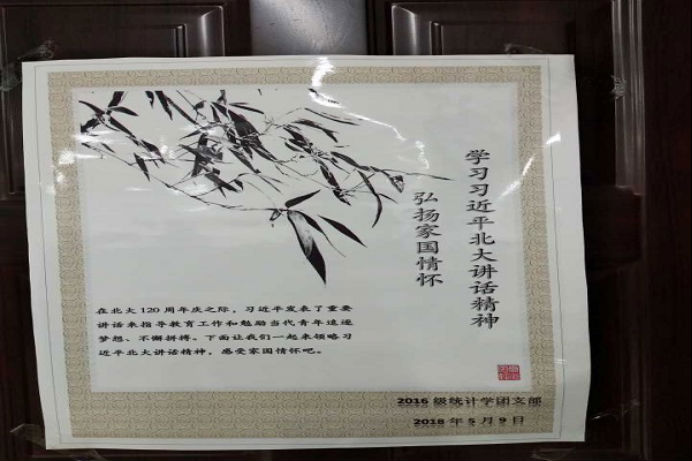 学习习近平北大讲话精神
弘扬家国情怀
在北大 120 周年庆之际，习近平发表了重要
讲话来指导教育工作和勉励当代青年追逐
梦想、不懈拼搏。下面让我们一起来领略习
近平北大讲话精神，感受家国情怀吧。
2016 级统计学团支部
2018 年 5 月 9 日